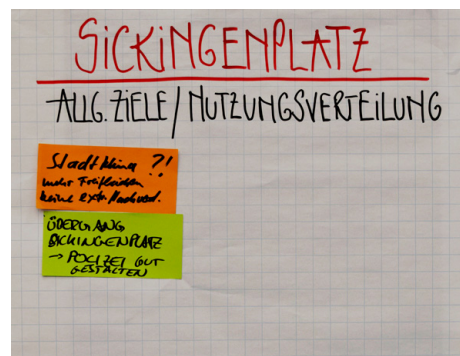 SICKINGENPLATZ
ALLG. ZIELE / NUTZUNGSVERTEILUNG
Stadtklima ?!
mehr Freiflächen
keine extr. Nachverd.
ÜBERGANG
SICKINGENPLATZ
→ POLIZEI GUT
GESTALTEN